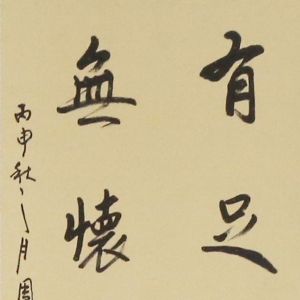 有足
無懷
丙申秋八月周